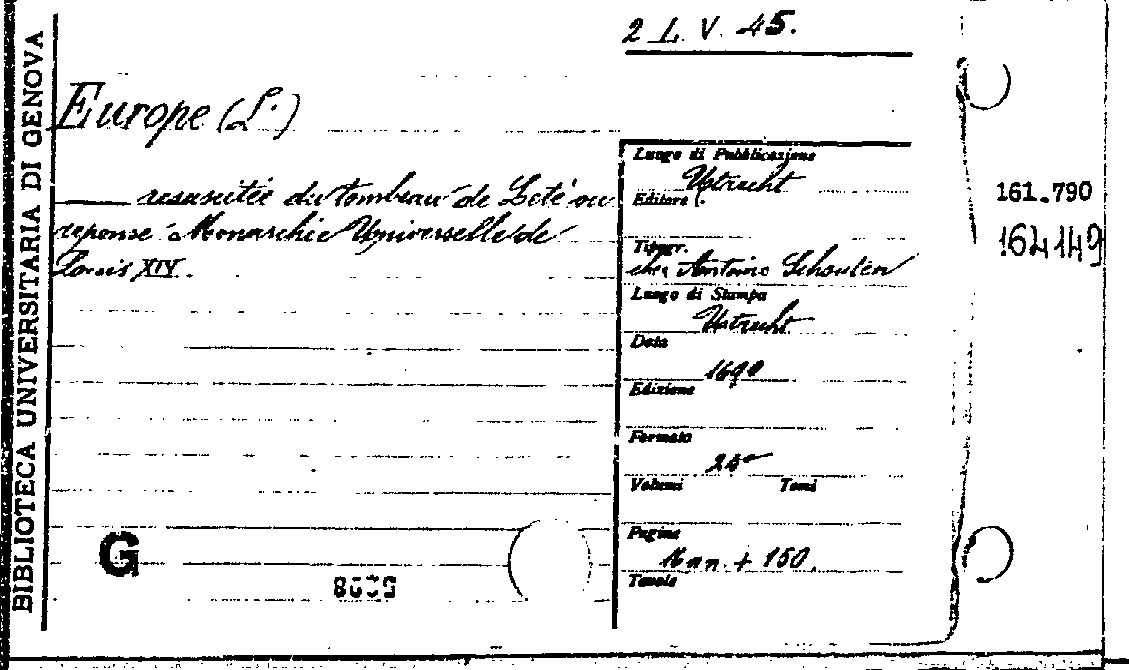 BIBLIOTECA UNIVERSITARIA DI GENOVA
2 L. V. 45.
Europe (L')
resuscitée du tombeau de Leté ou
reponse Monarchie Universelle de
Louis XIV.
Luogo di Pubblicazione
Utrecht
Editore
Tipogr.
chez Antoine Schouten
Luogo di Stampa
Utrecht
Data
1690
Edizione
Formato
24°
Volumi Tomi
Pagine
nn + 150.
Tavole
161.790
162149
G